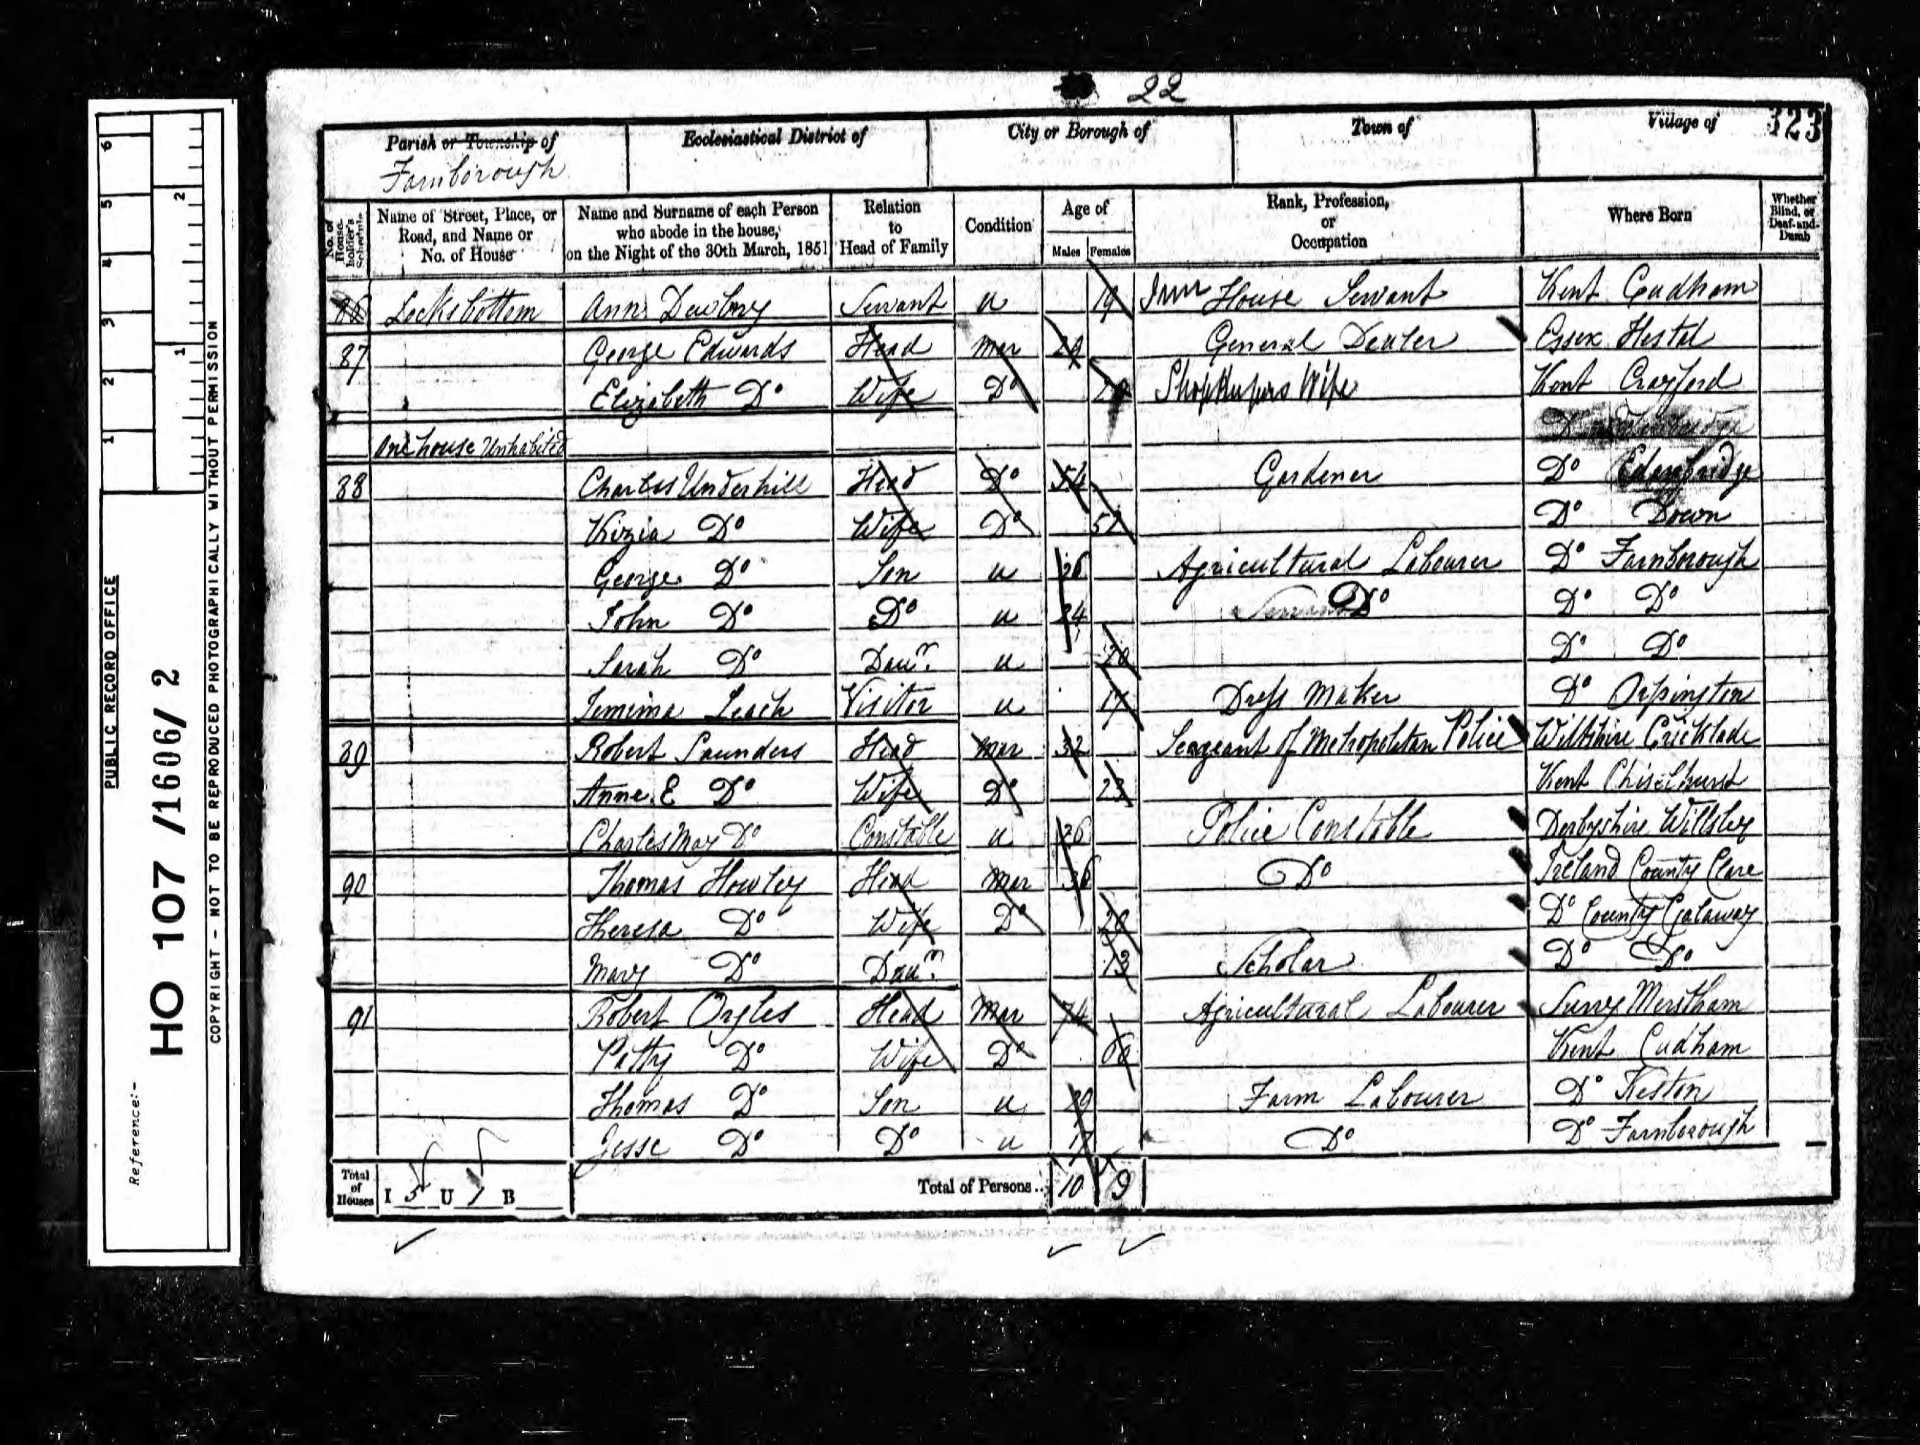 22
323
Parish or Township of
Farnborough
Ecclesiastical District of
City or Borough of
Town of
Village of
No. of House-holder's Schedule
Name of Street, Place, or Road, and Name or No. of House
Name and Surname of each Person who abode in the house, on the Night of the 30th March, 1851
Relation to Head of Family
Condition
Age of
Males
Females
Rank, Profession, or Occupation
Where Born
Whether Blind, or Deaf-and-Dumb
86 Locksbottom Ann Dewbry Servant u 19 Inn House Servant Kent Cudham
87 George Edwards Head Mar General Dealer Essex
Elizabeth Do Wife Do Shopkeepers Wife Kent Crayford
One house Unhabited
88 Charles Underhill Head Do 54 Gardener Do Edenbridge
Kizia Do Wife Do 51 Do Down
George Do Son u 26 Agricultural Labourer Do Farnborough
John Do Do u 24 Do Do Do
Sarah Do Daur. u 20 Do Do
Jemima Leach Visitor u 17 Dress Maker Do Orpington
89 Robert Saunders Head Mar 32 Seageant of Metropolitan Police Wiltshire Cricklade
Anne E Do Wife Do 23 Kent Chiselhurst
Charles May Do Constable u 26 Police Constable Derbyshire Willsley
90 Thomas Howley Head Mar 36 Do Ireland County Clare
Theresa Do Wife Do County Galaway
Mary Do Daur. 13 Scholar Do Do
91 Robert Orgles Head Mar 74 Agricultural Labourer Surry Merstham
Patty Do Wife Do 60 Kent Cudham
Thomas Do Son u 20 Farm Labourer Do Keston
Jesse Do Do u 17 Do Do Farnborough
Total of Houses I 5 U 1 B Total of Persons.. 10 9
PUBLIC RECORD OFFICE
Reference:-
HO 107 / 1606 / 2
COPYRIGHT - NOT TO BE REPRODUCED PHOTOGRAPHICALLY WITHOUT PERMISSION
1 2 3 4 5 6
1 2